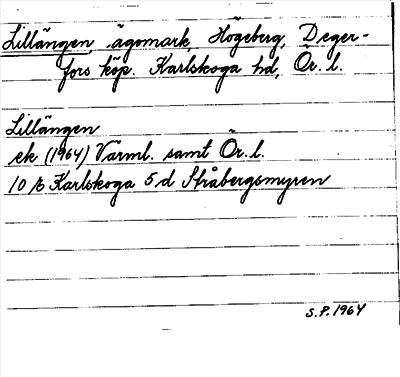 Lillängen, ägomark, Högeberg, Deger-
fors köp. Karlskoga hd, Ör. l.
Lillängen
ek (1964) Värml. samt Ör. l.
10 E Karlskoga 5 d Stråbergsmyren
S.P. 1964